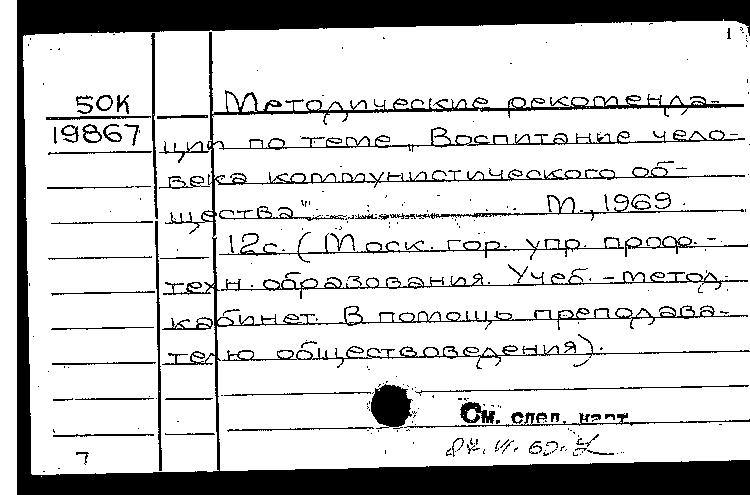 1
50К
19867
Методические рекоменда-
ции по теме „Воспитание чело-
века коммунистического об-
щества" М., 1969.
12с. (Моск. гор. упр. проф.-
техн. образования. Учеб.-метод.
кабинет. В помощь преподава-
телю обществоведения).
См. след. карт.
7